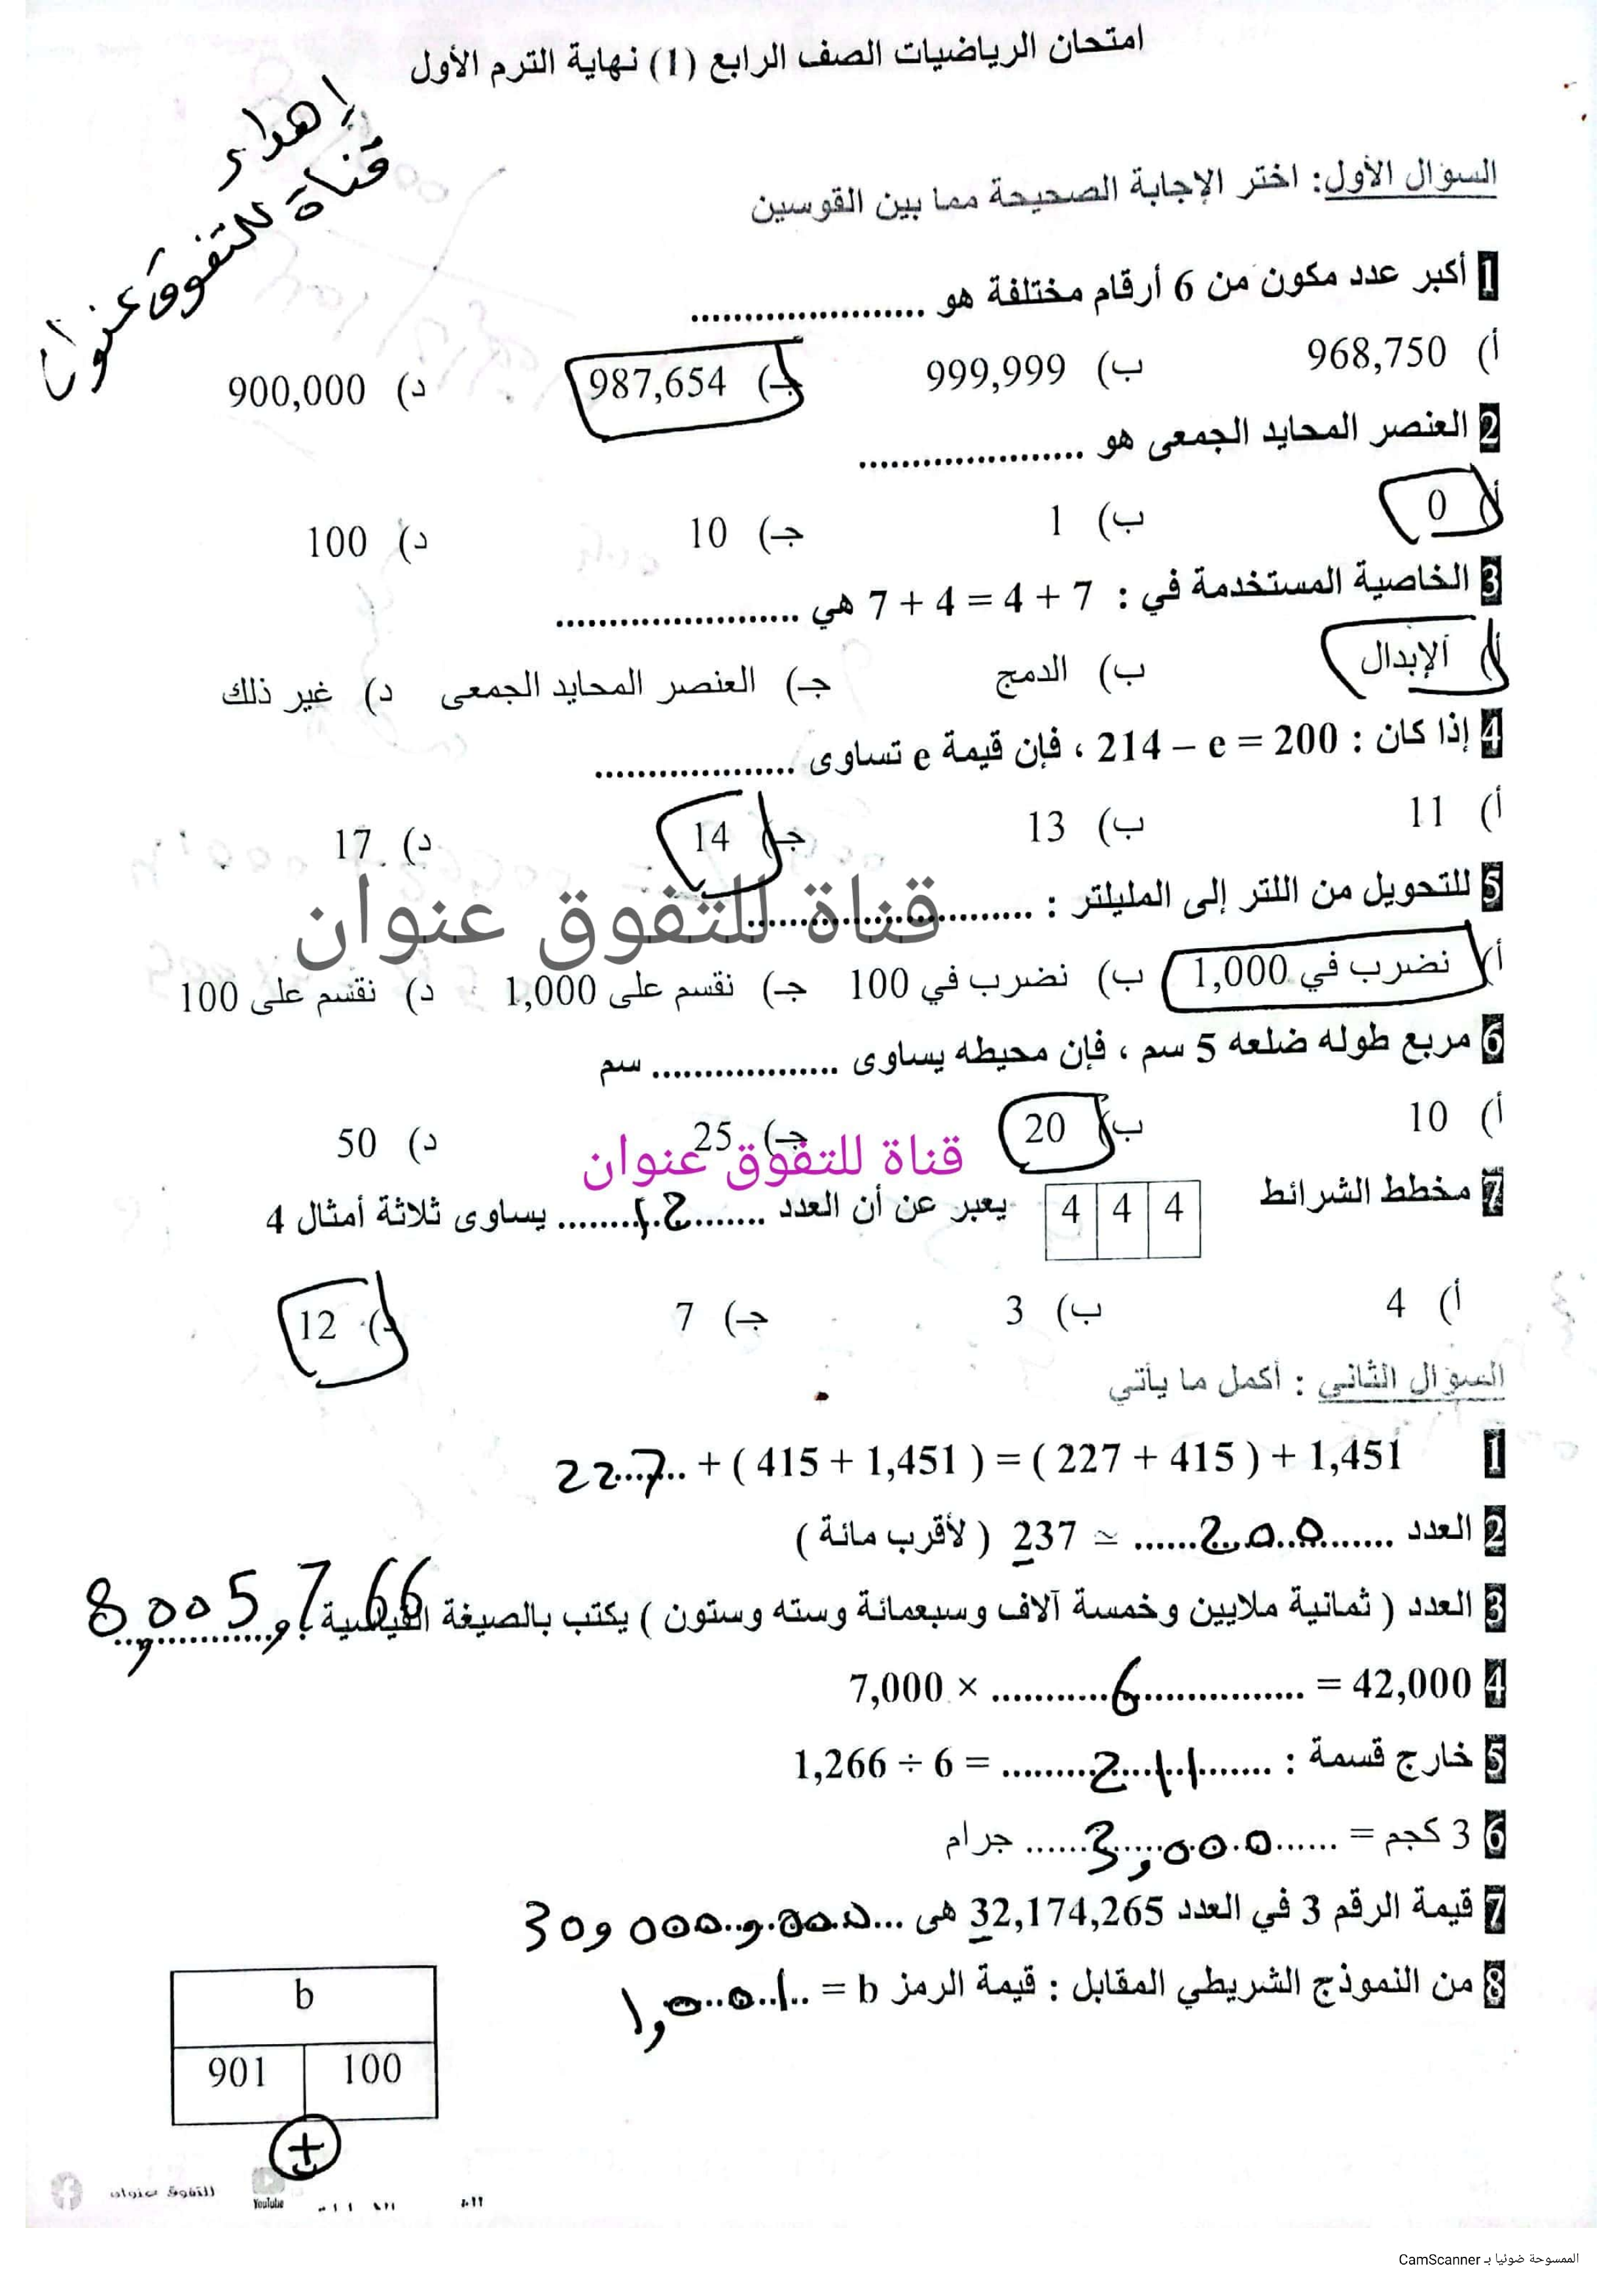 امتحان الرياضيات الصف الرابع (1) نهاية الترم الأول
إهداء
قناة للتفوق عنوان
السؤال الأول: اختر الإجابة الصحيحة مما بين القوسين
1 أكبر عدد مكون من 6 أرقام مختلفة هو ......................
أ) 968,750 ب) 999,999 جـ) 987,654 د) 900,000
2 العنصر المحايد الجمعى هو .....................
أ) 0 ب) 1 جـ) 10 د) 100
3 الخاصية المستخدمة في : 7 + 4 = 4 + 7 هي .......................
أ) الإبدال ب) الدمج جـ) العنصر المحايد الجمعى د) غير ذلك
4 إذا كان : 214 – e = 200 ، فإن قيمة e تساوى ...................
أ) 11 ب) 13 جـ) 14 د) 17
5 للتحويل من اللتر إلى المليلتر : ...........................
قناة للتفوق عنوان
أ) نضرب في 1,000 ب) نضرب في 100 جـ) نقسم على 1,000 د) نقسم على 100
6 مربع طوله ضلعه 5 سم ، فإن محيطه يساوى .................. سم
أ) 10 ب) 20 جـ) 25 د) 50
قناة للتفوق عنوان
7 مخطط الشرائط 4 4 4 يعبر عن أن العدد .......12........ يساوى ثلاثة أمثال 4
أ) 4 ب) 3 جـ) 7 د) 12
السؤال الثانى : أكمل ما يأتي
1 227 + ( 415 + 1,451 ) = ( 227 + 415 ) + 1,451
2 العدد .......200...... ≃ 237 ( لأقرب مائة )
3 العدد ( ثمانية ملايين وخمسة آلاف وسبعمائة وسته وستون ) يكتب بالصيغة القياسية 8,005,766
4 7,000 × ...........6............... = 42,000
5 خارج قسمة : 1,266 ÷ 6 = .........211.......
6 3 كجم = ......3,000...... جرام
7 قيمة الرقم 3 في العدد 32,174,265 هى ...30,000,000
8 من النموذج الشريطي المقابل : قيمة الرمز b = 1,001
b
901 100
+
للتفوق عنوان
YouTube
الممسوحة ضوئيا بـ CamScanner